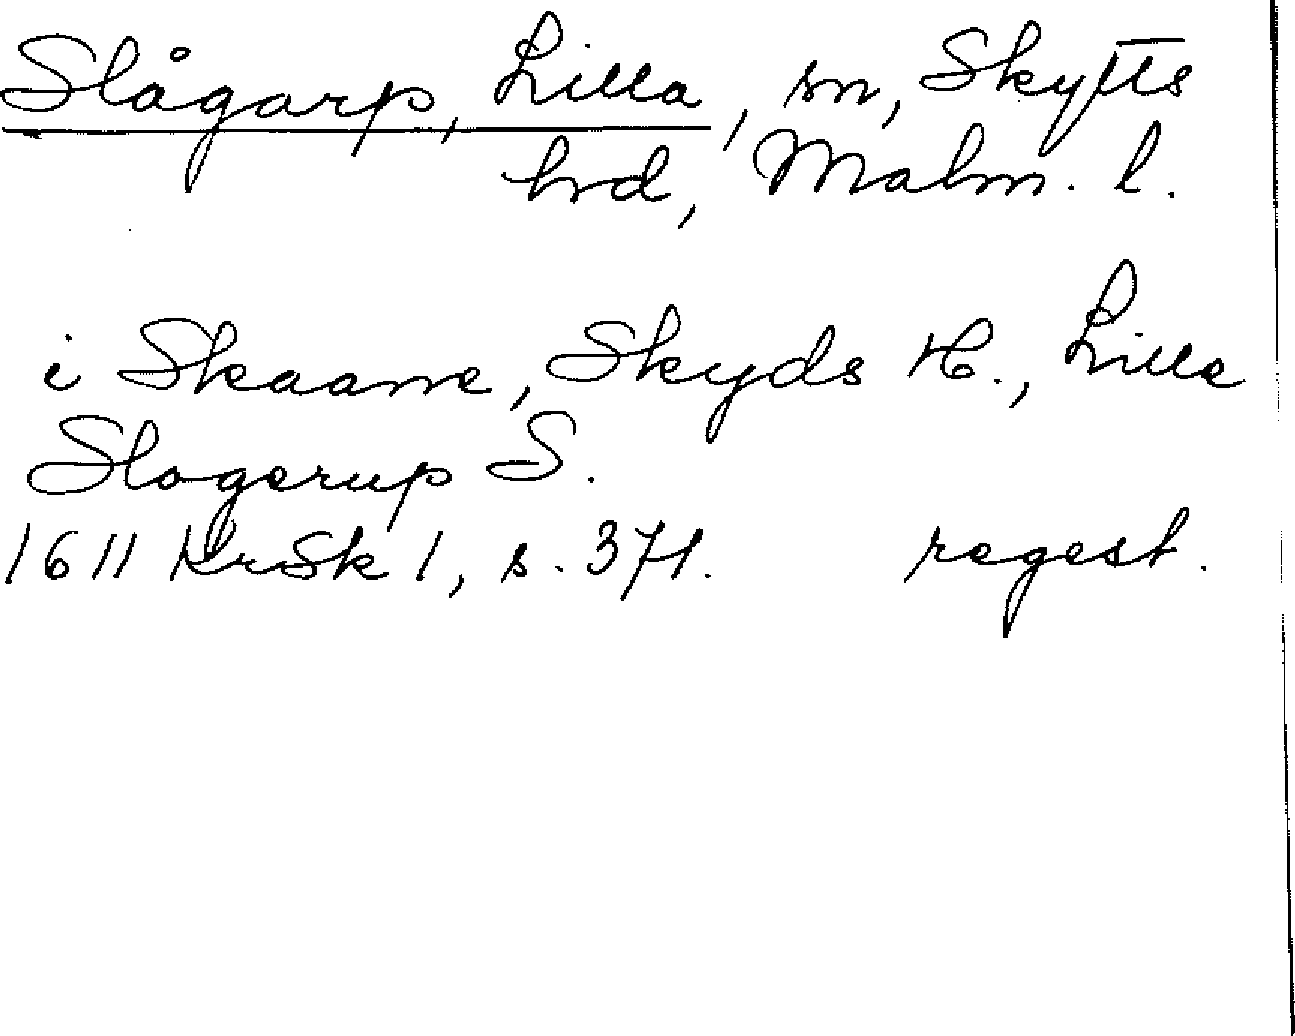 Slågarp, Lilla, sn, Skytts
hrd, Malm. l.
i Skaane, Skyds H., Lille
Slogerup S.
1611 KrSk 1, s. 371. regest.